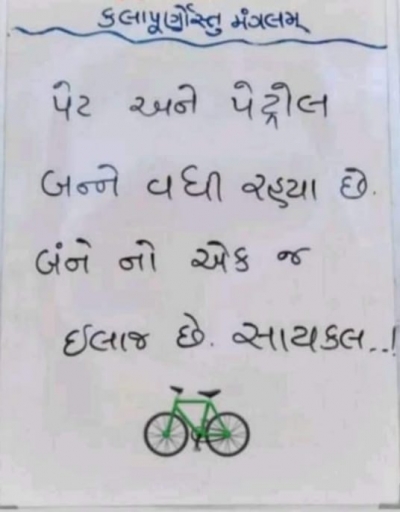 કલાપૂર્ણોસ્તુ મંગલમ્
પેટ અને પેટ્રોલ
બન્ને વધી રહ્યા છે.
બંને નો એક જ
ઈલાજ છે. સાયકલ..!